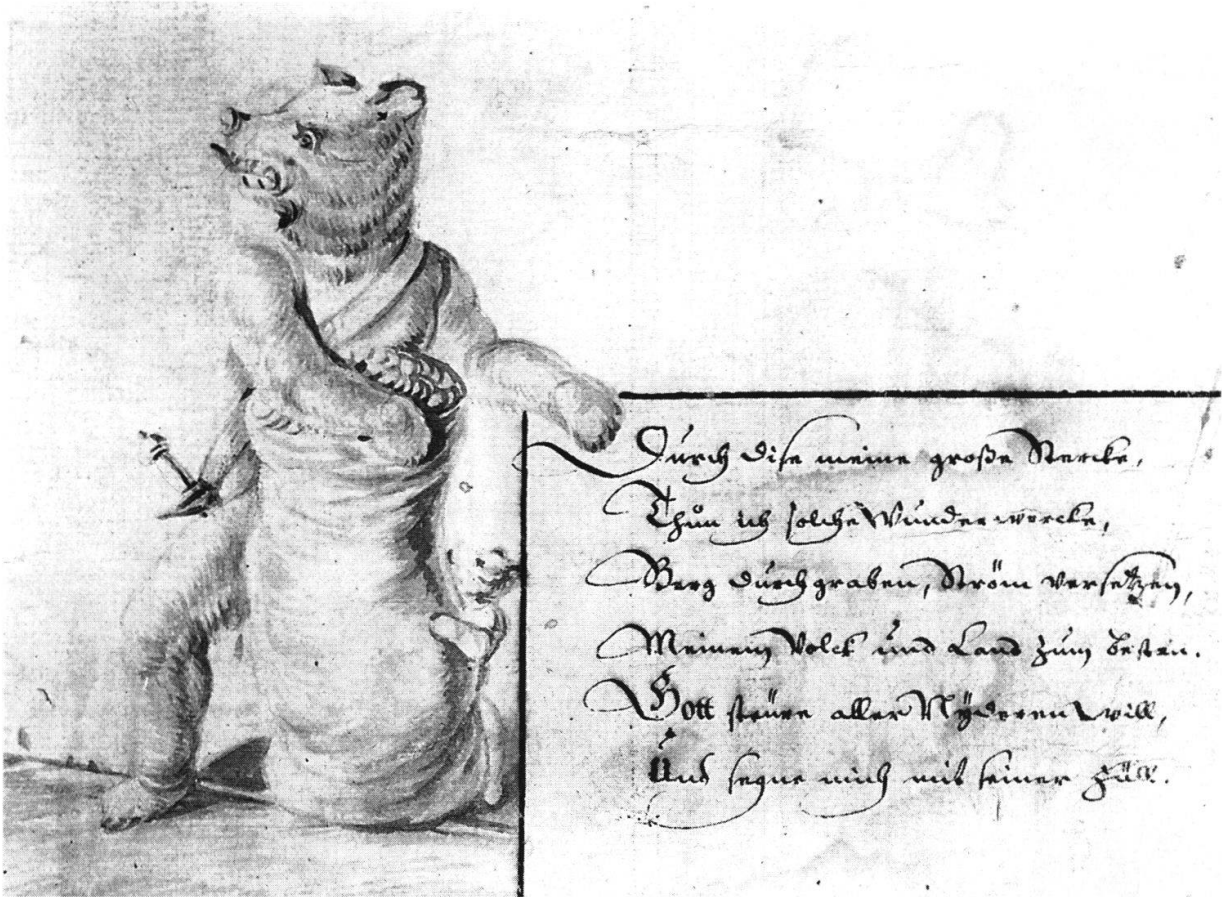 Durch dise meine große Stercke,
Thůn ich solche Wunderwercke,
Berg durchgraben, Ström versetzen,
Meinem Volck und Land zum besten.
Gott steüre aller Nyderen will,
Und segne mich mit seiner Füll.